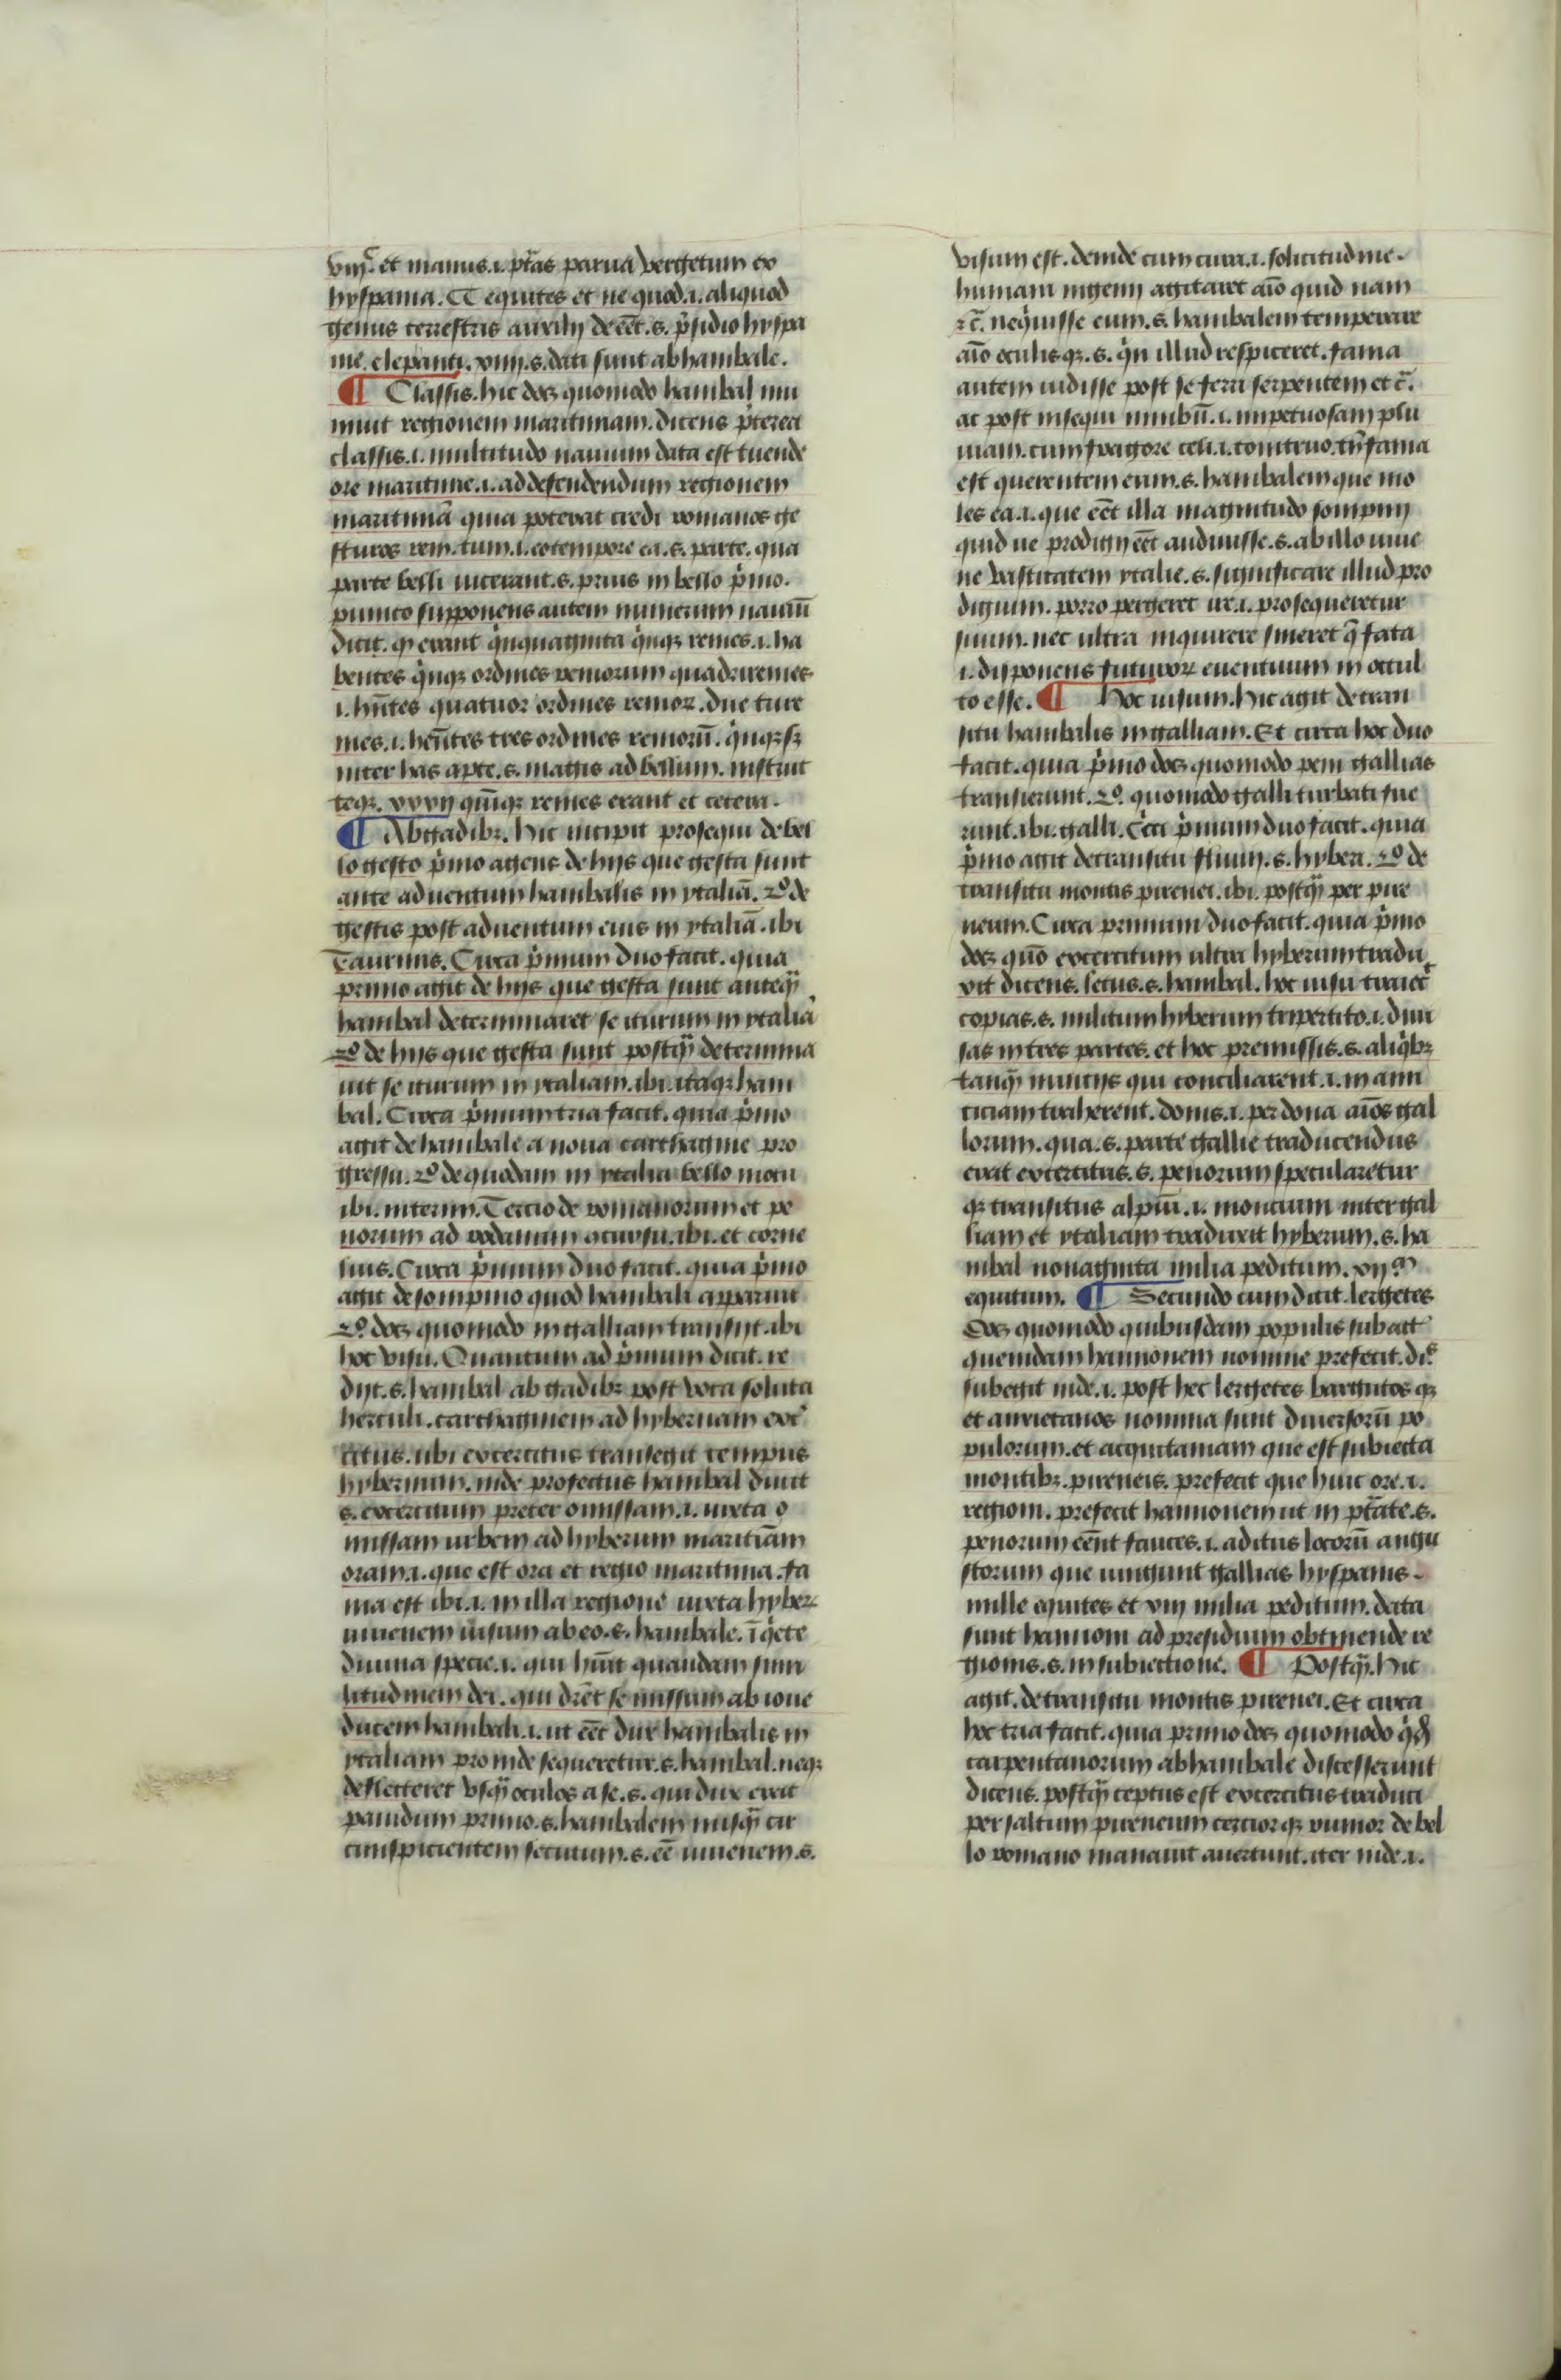 viijᶜ. et manus .i. ptās parua Vergetum ex
hyspania. CC equites et ne quod .i. aliquod
genus terrestris auxilij deeēt .s. p̍sidio hyspa
nie. elepanti. xiiij. s. dati sunt ab hanibale.
¶ Classis. hic doꝫ quomodo hanibal mu
niuit regionem maritimam. dicens p̍terea
classis .i. multitudo nauium data est tuende
ore maritime .i. ad defendendum regionem
maritimā quia poterat credi romanos ge
sturos rem. tum .i. eo tempore ea .s. parte. qua
parte belli uicerant .s. prius in bello p̍mo.
punico supponens autem numerum nauiū
dicit. ꝙ erant q̍nquaginta q̍nqꝫ remes .i. ha
bentes q̍nqꝫ ordines remorum quadriremes
.i. hn̄tes quatuor ordines remoꝝ. due tire
mes .i. hēntes tres ordines remorū. q̍nqꝫ sꝫ
inter has apte .s. magis ad bellum. instruc
teqꝫ. xxxij quīqꝫ remes erant et cetera.
¶ Ab gadibꝫ. hic incipit prosequi de bel
lo gesto p̍mo agens de hijs que gesta sunt
ante aduentum hanibalis in ytaliā. 2º de
gestis post aduentum eius in ytaliā. ibi
Taurinis. Circa p̍mum duo facit. quia
primo agit de hijs que gesta sunt anteqͣ̄
hanibal determinaret se iturum in ytaliā
2º de hijs que gesta sunt postqͣ̄ determina
uit se iturum in ytaliam. ibi. itaqꝫ hani
bal. Circa p̍mum tria facit. quia p̍mo
agit de hanibale a noua carthagine pro
gressu. 2º de quodam in ytalia bello motu
ibi. interim. Tercio de romanorum et pe
norum ad rodanum occursu. ibi. et corne
lius. Circa p̍mum duo facit. quia p̍mo
agit de sompnio quod hanibali apparuit
2º doꝫ quomodo in galliam transijt. ibi
hoc visu. Quantum ad p̍mum dicit. re
dijt .s. hanibal ab gadibꝫ post vota soluta
herculi. carthaginem ad hybernam exer
citus. ubi excercitus transegit tempus
hybernum. inde profectus hanibal duxit
.s. excercitum preter omissam .i. iuxta o
missam urbem ad hyberum maritīam
oram .i. que est ora et regio maritima. fa
ma est ibi .i. in illa regione iuxta hyberꝝ
iuuenem uisum ab eo .s. hanibale. ī q̍ete
diuina specie .i. qui hūit quandam simi
litudinem dei. qui dr̄et se missum ab ioue
ducem hanibali .i. ut eēt dux hanibalis in
ytaliam pro inde sequeretur .s. hanibal. neqꝫ
deflecteret vsqͣ̄ oculos a se .s. qui dux erat
pauidum primo .s. hanibalem nusqͣ̄ cir
cunspicientem secutum .s. eē iuuenem .s.
visum est. deinde cum cura .i. solicitudine.
humani ingenij agitaret aīo quid nam
⁊ c̄. neq̍uisse eum .s. hanibalem temperare
aīo oculisqꝫ .s. q̍n illud respiceret. fama
autem uidisse post se ferri serpentem et c̄.
ac post insequi nimbū .i. impetuosam plu
uiam. cum fragore celi .i. tonitruo. tn̄ fama
est querentem eum .s. hanibalem que mo
les ea .i. que eēt illa magnitudo sompnij
quid ue prodigij eēt audiuisse .s. ab illo iuue
ne vastitatem ytalie .s. significare illud pro
digium. porro pergeret ire .i. prosequeretur
suum. nec ultra inquirere sineret q̄ fata
.i. disponens futuroꝝ euentuum in occul
to esse. ¶ Hoc uisum. hic agit de tran
situ hanibalis in galliam. Et circa hoc duo
facit. quia p̍mo doꝫ quomodo peni gallias
transierunt. 2º. quomodo galli turbati fue
runt. ibi. galli. Circa p̍mum duo facit. quia
p̍mo agit de transitu fluuij .s. hyberi. 2º de
transitu montis pirenei. ibi. postqͣ̄ per pire
neum. Circa primum duo facit. quia p̍mo
doꝫ quō excercitum ultra hyberum tradu
xit dicens. letus .s. hanibal. hoc uisu traiecit
copias .s. militum hyberum tripertito .i. diui
sas in tres partes. et hoc premissis .s. aliq̍bꝫ
tanqͣ̄ nuncijs qui conciliarent .i. in ami
ciciam traherent. donis .i. per dona aīos gal
lorum. qua .s. parte gallie traducendus
erat excercitus .s. penorum specularetur
qꝫ transitus alpiū .i. montium inter gal
liam et ytaliam traduxit hyberum .s. ha
nibal nonaginta milia peditum. xijᵐ
equitum. ¶ Secundo cum dicit. lergetes
Doꝫ quomodo quibusdam populis subact
quemdam hannonem nomine prefecit. diᶜ
subegit inde .i. post hec lergetes bargutos qꝫ
et auxietanos nomina sunt diuersorū po
pulorum. et acquitaniam que est subiecta
montibꝫ. pireneis. prefecit que huic ore .i.
regioni. prefecit hannonem ut in ptāte .s.
penorum eēnt fauces .i. aditus locorū angu
storum que iungunt gallias hyspanis.
mille equites et viij milia peditum. data
sunt hannoni ad presidium obtinende re
gionis .s. in subiectione. ¶ Postqͣ̄. hic
agit. de transitu montis pirenei. Et circa
hoc tria facit. quia primo doꝫ quomodo q̍dā
carpentanorum ab hanibale discesserunt
dicens. postqͣ̄ ceptus est excercitus traduci
per saltum pireneum cercior qꝫ rumor de bel
lo romano manauit auertunt. iter inde .i.